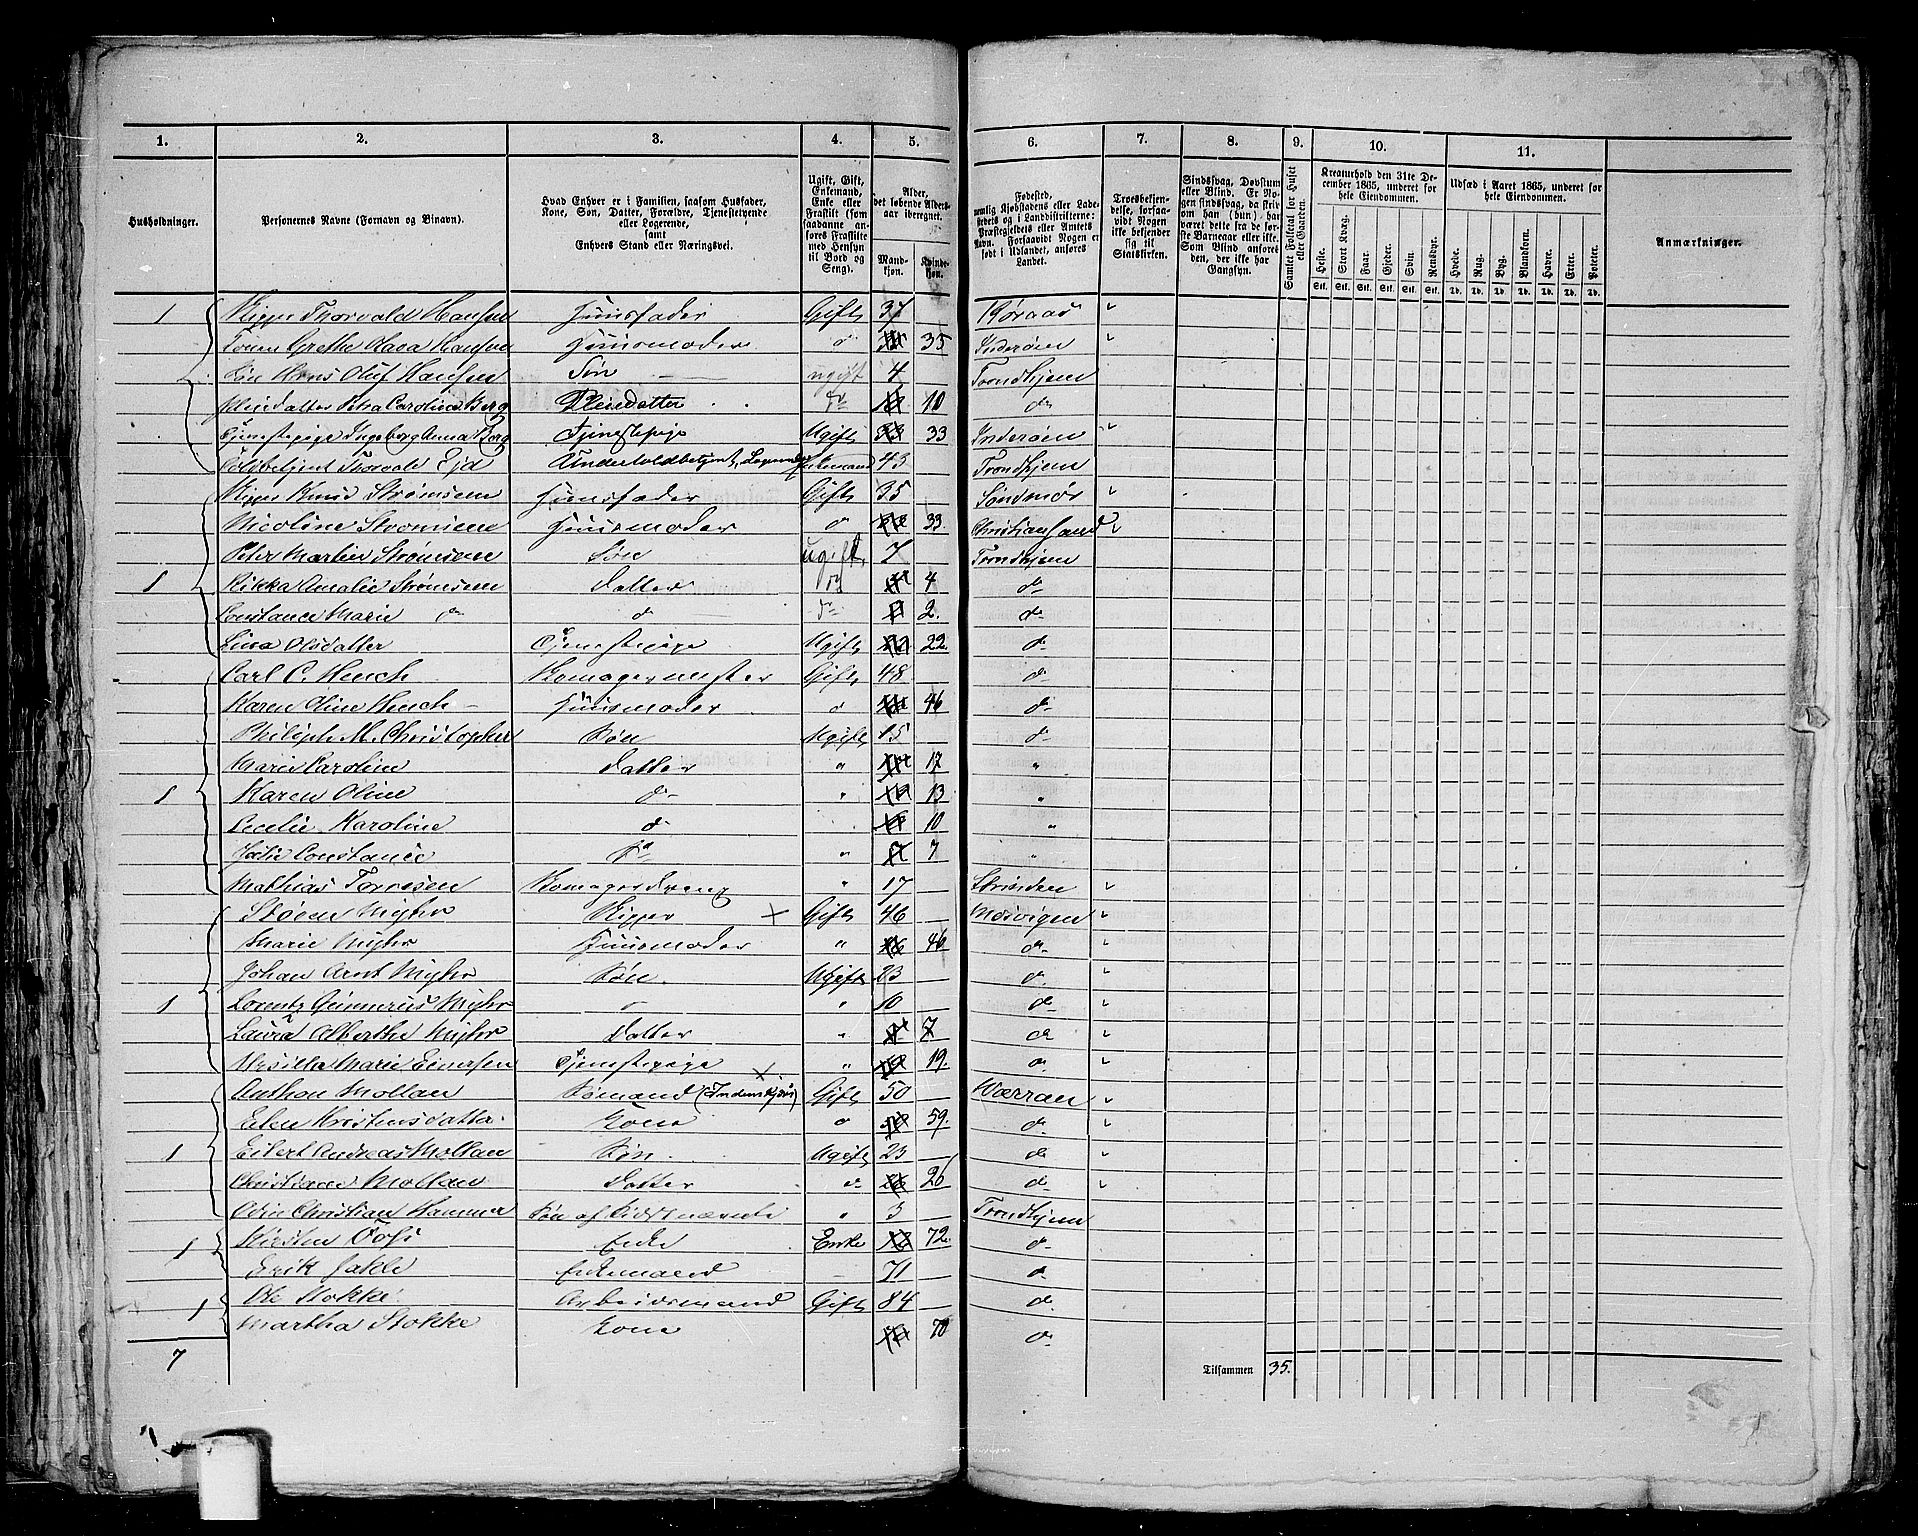 1. 2. 3. 4. 5. 6. 7. 8. 9. 10. 11.
Husholdninger.
Personernes Navne (Fornavn og Binavn).
Hvad Enhver er i Familien, saasom Husfader, Kone, Søn, Datter, Forældre, Tjenestetyende eller Logerende, samt Enhvers Stand eller Næringsvei.
Ugift, Gift, Enkemand, Enke eller Fraskilt (som saadanne anføres Fraskilte med Hensyn til Bord og Seng).
Alder, det løbende Aldersaar iberegnet.
Mandkjøn. Kvindekjøn.
Fødested, nemlig Kjøbstadens eller Ladestedets og i Landdistrikterne: Præstegjeldets eller Amtets Navn. Forsaavidt Nogen er født i Udlandet, anføres Landet.
Troesbekjendelse, forsaavidt Nogen ikke bekjender sig til Statskirken.
Sindssvag, Døvstum eller Blind. Er Nogen sindssvag, da skrives om han (hun) har været dette fra de første Barneaar eller ikke. Som Blind anføres den, der ikke har Gangsyn.
Samlet Folketal for Huset eller Gaarden.
Kreaturhold den 31te December 1865, underet for hele Eiendommen.
Heste. Stort Kvæg. Faar. Gjeder. Svin. Rensdyr.
Stk. Stk. Stk. Stk. Stk. Stk.
Udsæd i Aaret 1865, underet for hele Eiendommen.
Hvede. Rug. Byg. Blandkorn. Havre. Erter. Poteter.
Td. Td. Td. Td. Td. Td. Td.
Anmærkninger.
1 Thorvald Hansen Huusfader Gift 37 Røraas
Grethe Olava Hansen Huusmoder do 35 Inderøen
Søn Hans Oluf Hansen Søn ugift 4 Trondhjem
Pleiedatter Petra Caroline Berg Pleiedatter do 10 do
Tjenestepige Ingeborg Anna Berg Tjenestepige Ugift 33 Inderøen
Toldbetjent Thorvald Eid Undertoldbetjent, Logerende Enkemand 43 Trondhjem
Knud Strømsem Huusfader Gift 35 Søndmør
Nicoline Strømsem Huusmoder do 33 Christiansand
Peter Martin Strømsem Søn ugift 7 Trondhjem
1 Rikka Amalie Strømsem Datter do 4 do
Constance Marie do do do 2. do
Lina Olsdatter Tjenestepige Ugift 22 do
Carl C. Hench Skomagermester Gift 48 do
Karen Oline Hench Huusmoder do 46 do
Philiph M. Christopher Søn Ugift 15 do
Marie Caroline Datter " 17 "
1 Karen Oline do " 13 "
Cecelie Karoline do 10 "
Constance do " 7 "
Mathias Skomagerdreng " 17 Strinden
Støen Myhr Skipper × Gift 46 Mosvigen
Marie Myhr Huusmoder " 46 do
Johan Arnt Myhr Søn Ugift 23 do
1 Lorentz Gunnerus Myhr do " 10 do
Laura Alberthe Myhr Datter " 7 do
Marie Einersen Tjenestepige " 19 do
Anthon Mollan Sømand × Gift 50 Værran
Elen Kristensdatter Kone do 59. do
1 Eilert Andreas Mollan Søn Ugift 23 do
Christiane Mollan Datter do 26 do
Odin Christian Hammer Søn af Sidstnævnte " 3 Trondhjem
1 Kirsten Enke Enke 72. do
Erik Jakle Enkemand 71 do
1 Ole Stokke Arbeidsmand Gift 84 do
Martha Stokke Kone 70 do
7
Tilsammen 35.